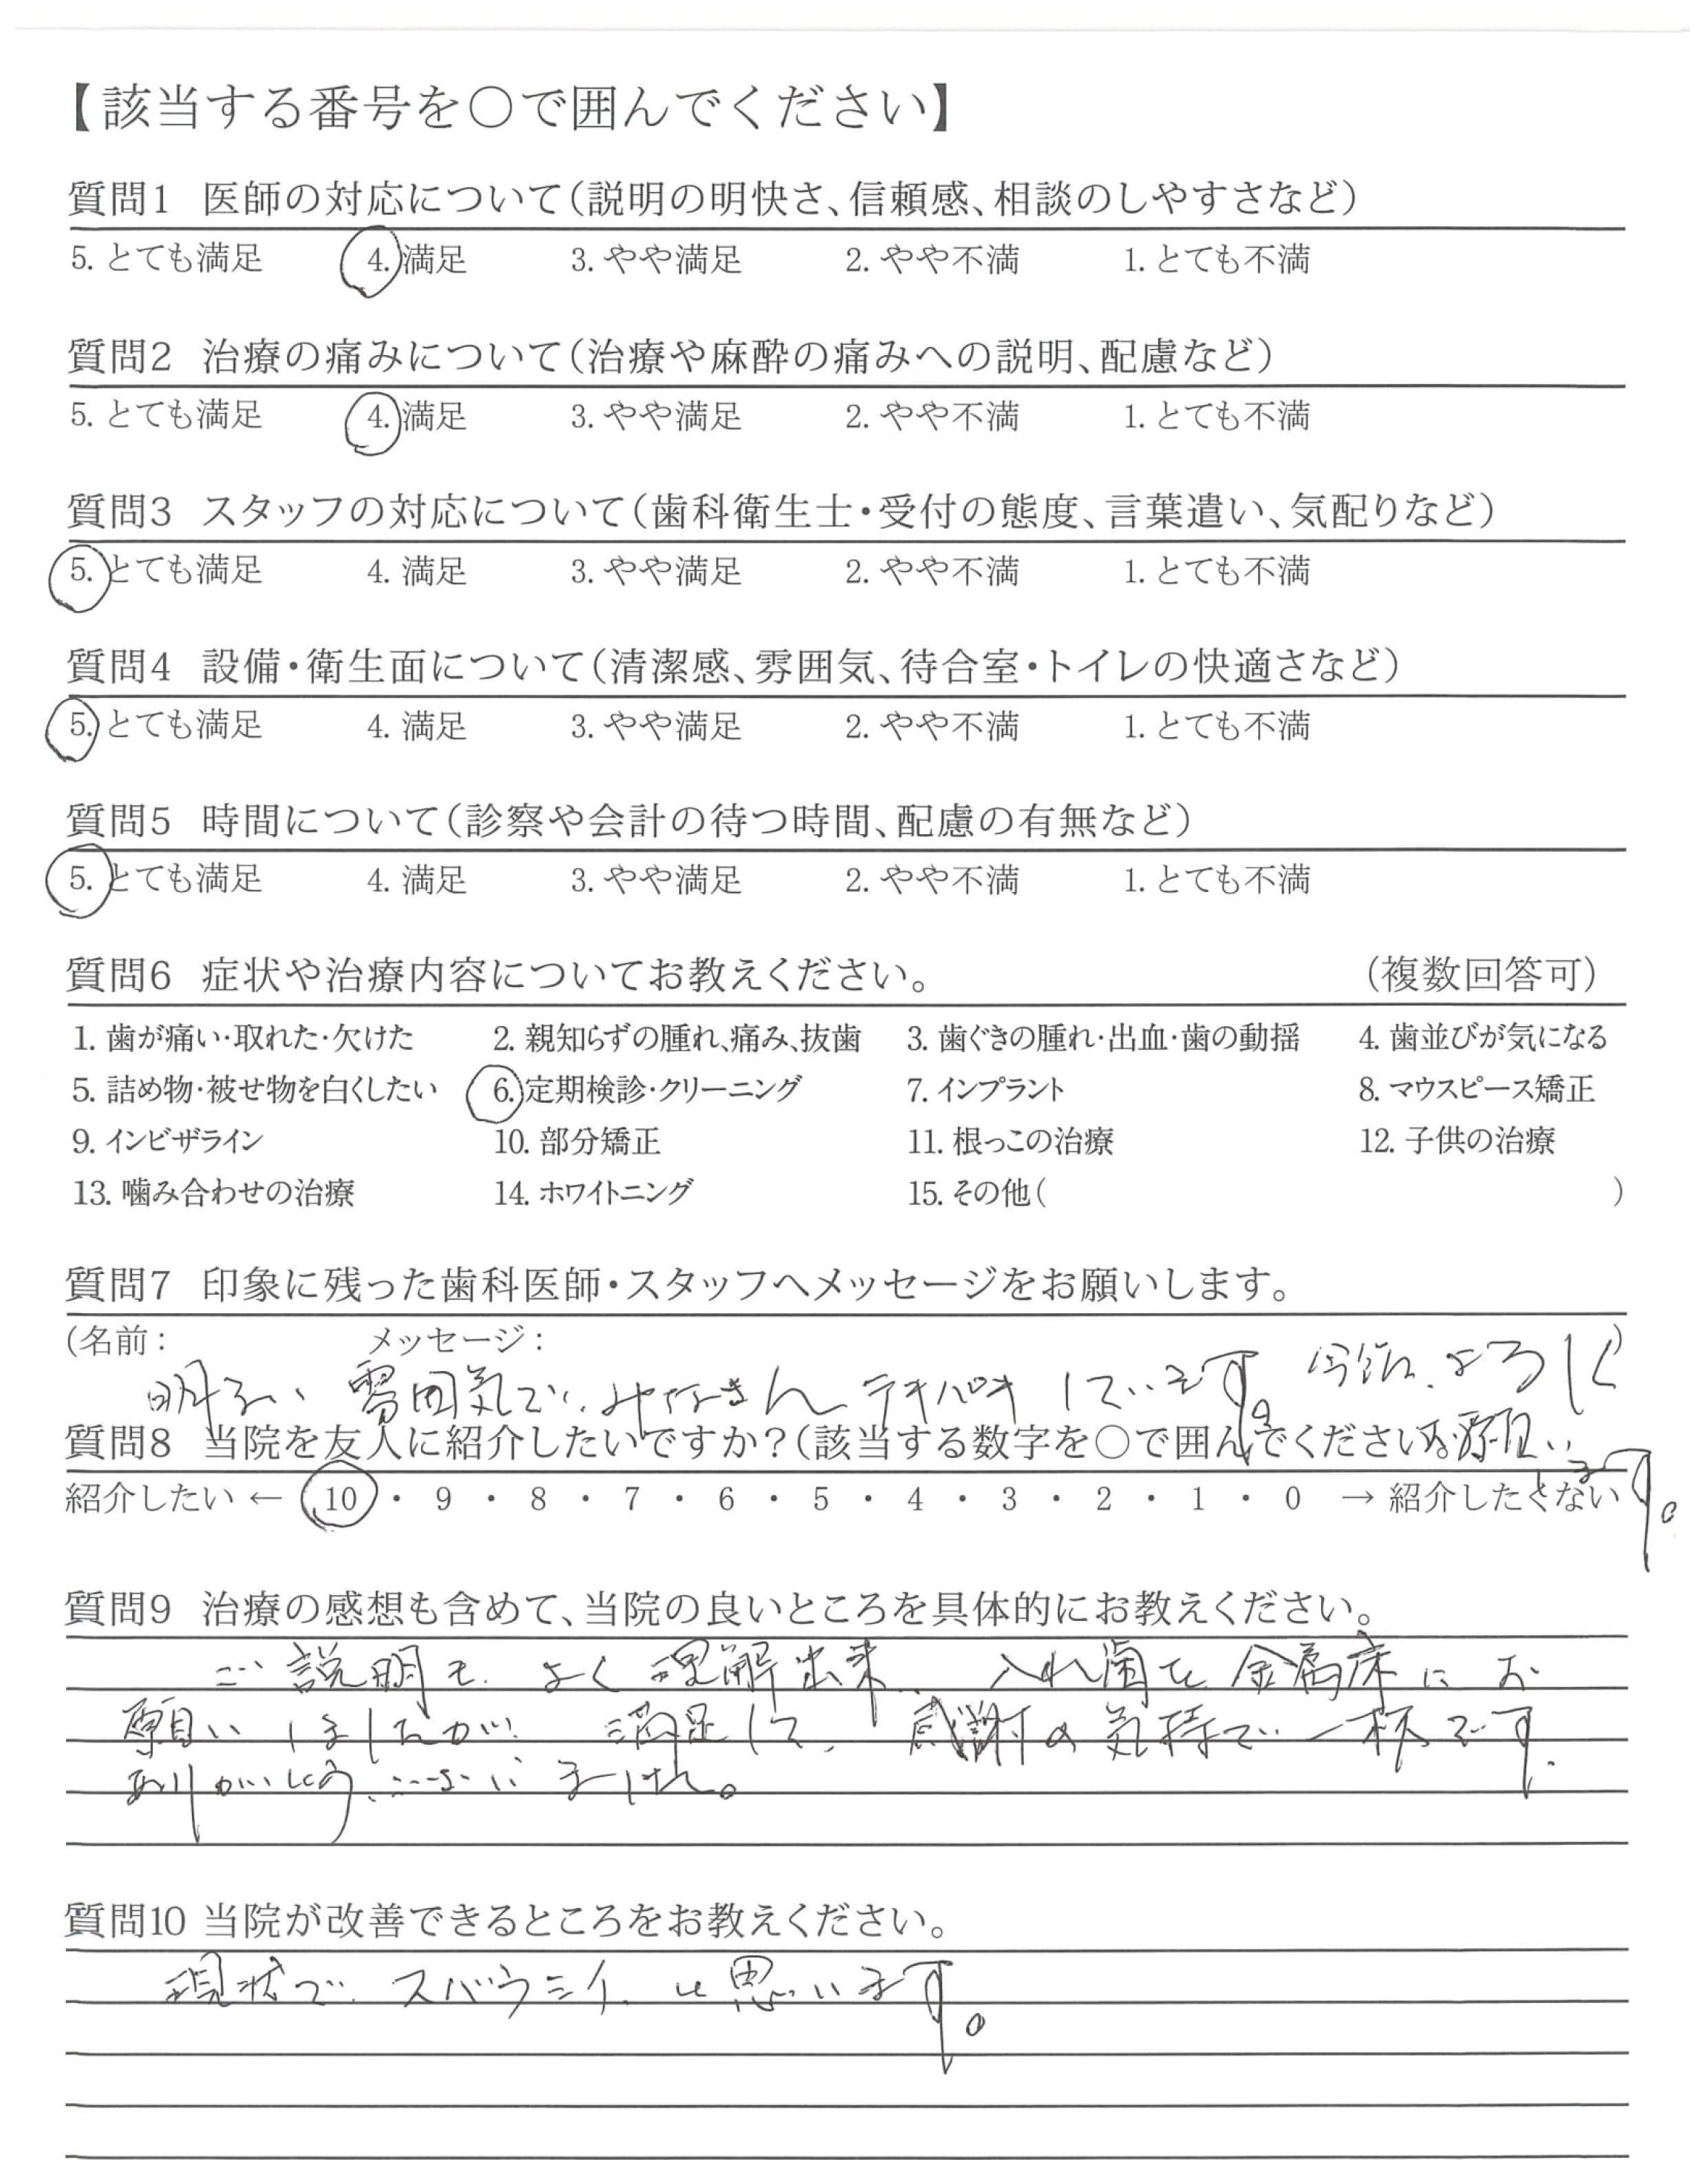 【該当する番号を○で囲んでください】
質問1 医師の対応について(説明の明快さ、信頼感、相談のしやすさなど)
5. とても満足 4. 満足 3. やや満足 2. やや不満 1. とても不満
質問2 治療の痛みについて(治療や麻酔の痛みへの説明、配慮など)
5. とても満足 4. 満足 3. やや満足 2. やや不満 1. とても不満
質問3 スタッフの対応について(歯科衛生士・受付の態度、言葉遣い、気配りなど)
5. とても満足 4. 満足 3. やや満足 2. やや不満 1. とても不満
質問4 設備・衛生面について(清潔感、雰囲気、待合室・トイレの快適さなど)
5. とても満足 4. 満足 3. やや満足 2. やや不満 1. とても不満
質問5 時間について(診察や会計の待つ時間、配慮の有無など)
5. とても満足 4. 満足 3. やや満足 2. やや不満 1. とても不満
質問6 症状や治療内容についてお教えください。 (複数回答可)
1. 歯が痛い・取れた・欠けた 2. 親知らずの腫れ、痛み、抜歯 3. 歯ぐきの腫れ・出血・歯の動揺 4. 歯並びが気になる
5. 詰め物・被せ物を白くしたい 6. 定期検診・クリーニング 7. インプラント 8. マウスピース矯正
9. インビザライン 10. 部分矯正 11. 根っこの治療 12. 子供の治療
13. 噛み合わせの治療 14. ホワイトニング 15. その他( )
質問7 印象に残った歯科医師・スタッフへメッセージをお願いします。
(名前: メッセージ: )
明るい雰囲気で、みなさんテキパキしています。今後、よろしく
お願いします。
質問8 当院を友人に紹介したいですか?(該当する数字を○で囲んでください)
紹介したい ← 10 ・ 9 ・ 8 ・ 7 ・ 6 ・ 5 ・ 4 ・ 3 ・ 2 ・ 1 ・ 0 → 紹介したくない
質問9 治療の感想も含めて、当院の良いところを具体的にお教えください。
ご説明も、よく理解出来、入れ歯を金属床にお
願いしましたが、満足して、感謝の気持で一杯です。
ありがとうございました。
質問10 当院が改善できるところをお教えください。
現状でスバラシイと思います。